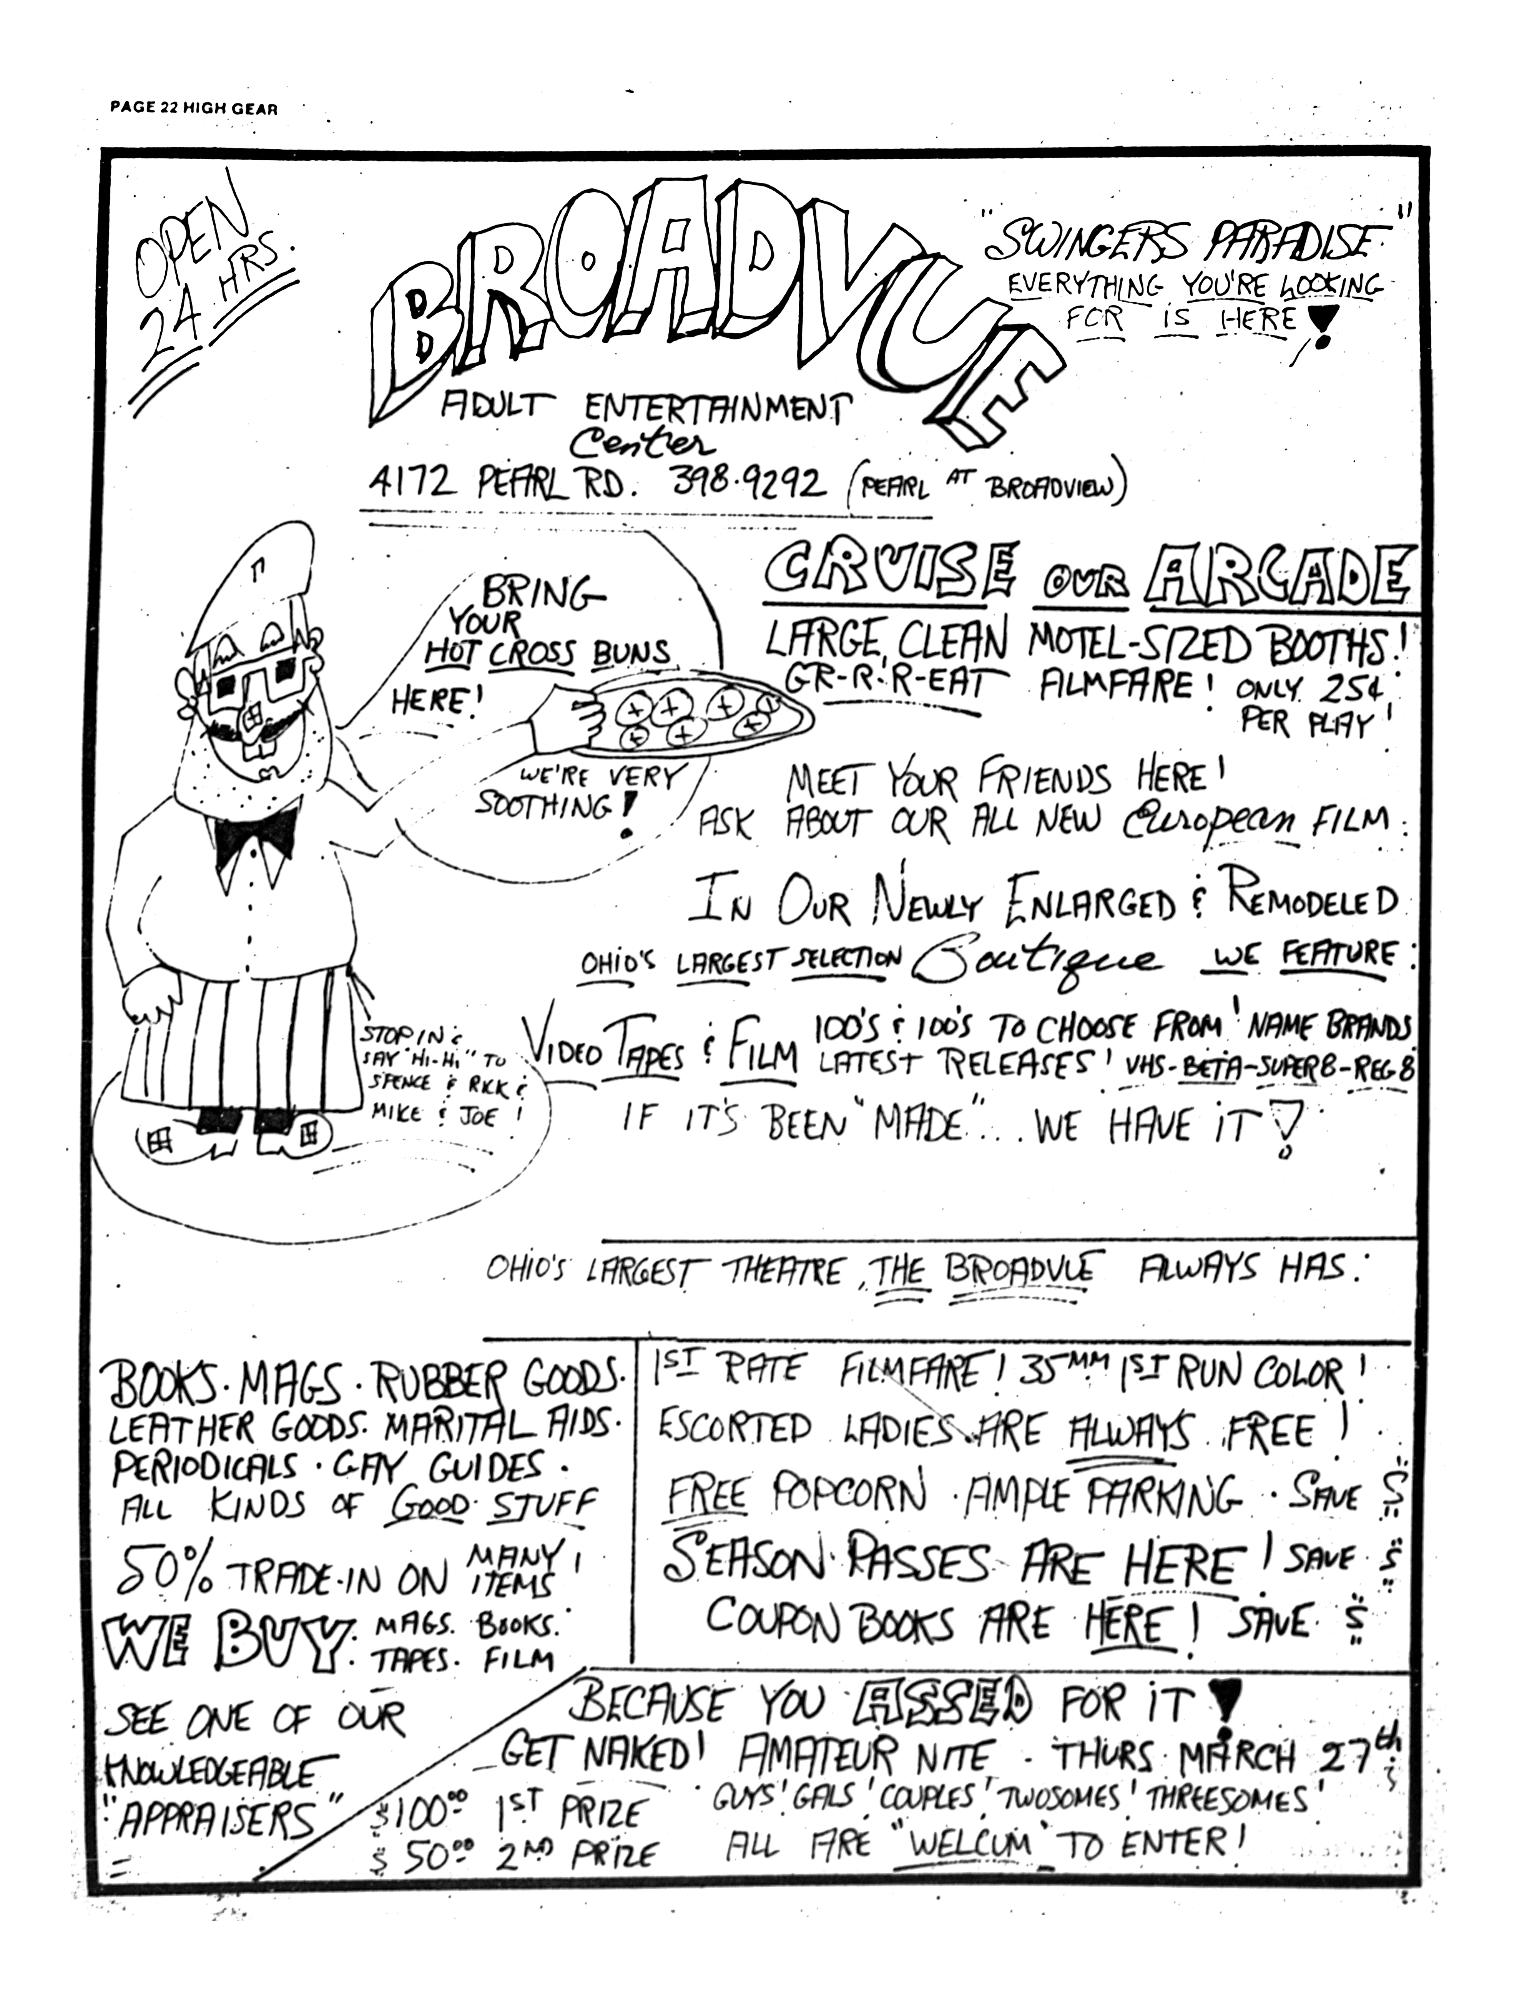 PAGE 22 HIGH GEAR
OPEN
24 HRS.
BROADVUE
"SWINGERS PARADISE"
EVERYTHING YOU'RE LOOKING
FOR IS HERE!
ADULT ENTERTAINMENT
Center
4172 PEARL RD. 398-9292 (PEARL AT BROADVIEW)
BRING
YOUR
HOT CROSS BUNS
HERE!
WE'RE VERY
SOOTHING!
CRUISE OUR ARCADE
LARGE, CLEAN MOTEL-SIZED BOOTHS!
GR-R-R-EAT ALMFARE! ONLY 25¢
PER PLAY!
MEET YOUR FRIENDS HERE!
ASK ABOUT OUR ALL NEW European FILM.
IN OUR NEWLY ENLARGED & REMODELED
OHIO'S LARGEST SELECTION Boutique WE FEATURE:
VIDEO TAPES & FILM 100'S & 100'S TO CHOOSE FROM! NAME BRANDS
LATEST RELEASES! VHS-BETA-SUPER8-REG8
IF IT'S BEEN "MADE"... WE HAVE IT!
STOP IN &
SAY "HI-HI" TO
SPENCE & RICK &
MIKE & JOE!
OHIO'S LARGEST THEATRE, THE BROADVUE ALWAYS HAS:
BOOKS. MAGS. RUBBER GOODS.
LEATHER GOODS. MARITAL AIDS.
PERIODICALS. GAY GUIDES.
ALL KINDS OF GOOD STUFF
50% TRADE-IN ON MANY ITEMS!
WE BUY. MAGS. BOOKS.
TAPES. FILM
SEE ONE OF OUR
KNOWLEDGEABLE
"APPRAISERS"
1ST RATE FILMFARE! 35MM 1ST RUN COLOR!
ESCORTED LADIES ARE ALWAYS FREE!
FREE POPCORN. AMPLE PARKING. SAVE $
SEASON PASSES ARE HERE! SAVE $
COUPON BOOKS ARE HERE! SAVE $
BECAUSE YOU ASSED FOR IT!
GET NAKED! AMATEUR NITE - THURS. MARCH 27th
$100.00 1ST PRIZE GUYS! GALS! COUPLES! TWOSOMES! THREESOMES!
$50.00 2ND PRIZE ALL ARE "WELCUM" TO ENTER!